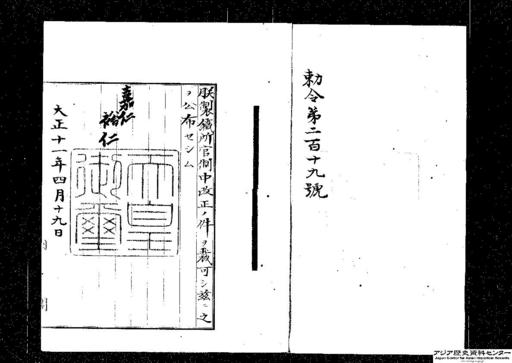 勅令第二百十九號
朕製鐵所官制中改正ノ件ヲ裁可シ茲ニ之
ヲ公布セシム
嘉仁
裕仁
天皇御璽
大正十一年四月十九日
アジア歴史資料センター
Japan Center for Asian Historical Records